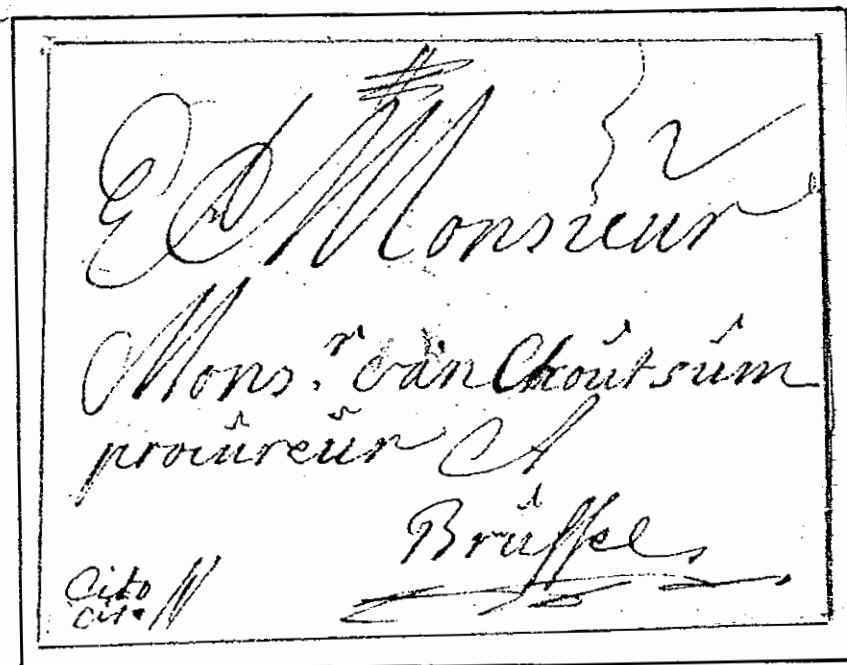 A Monsieur
Mons.r van Choutsum
procureur A
Brussel
Cito
cito